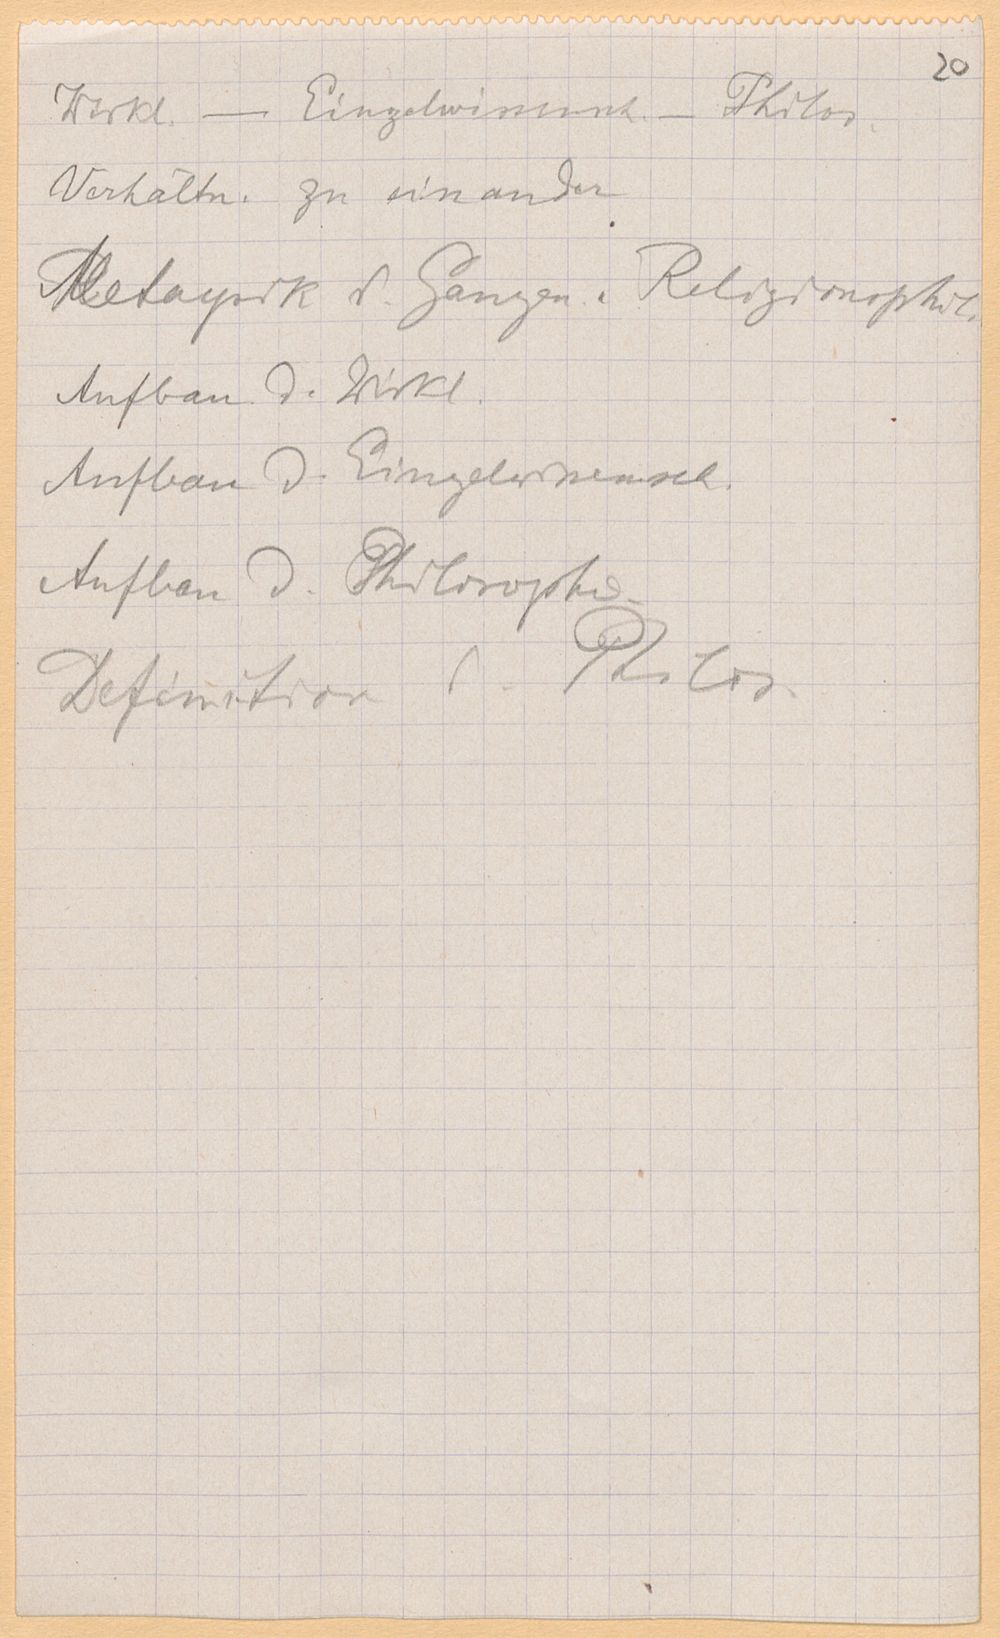 20
Wirkl. — Einzelwissensch. — Philos.
Verhältn. zu einander
Metaysik d. Ganzen. Religionsphil.
Aufbau d. Wirkl.
Aufbau d. Einzelwissensch.
Aufbau d. Philosophie.
Definition d. Philos.